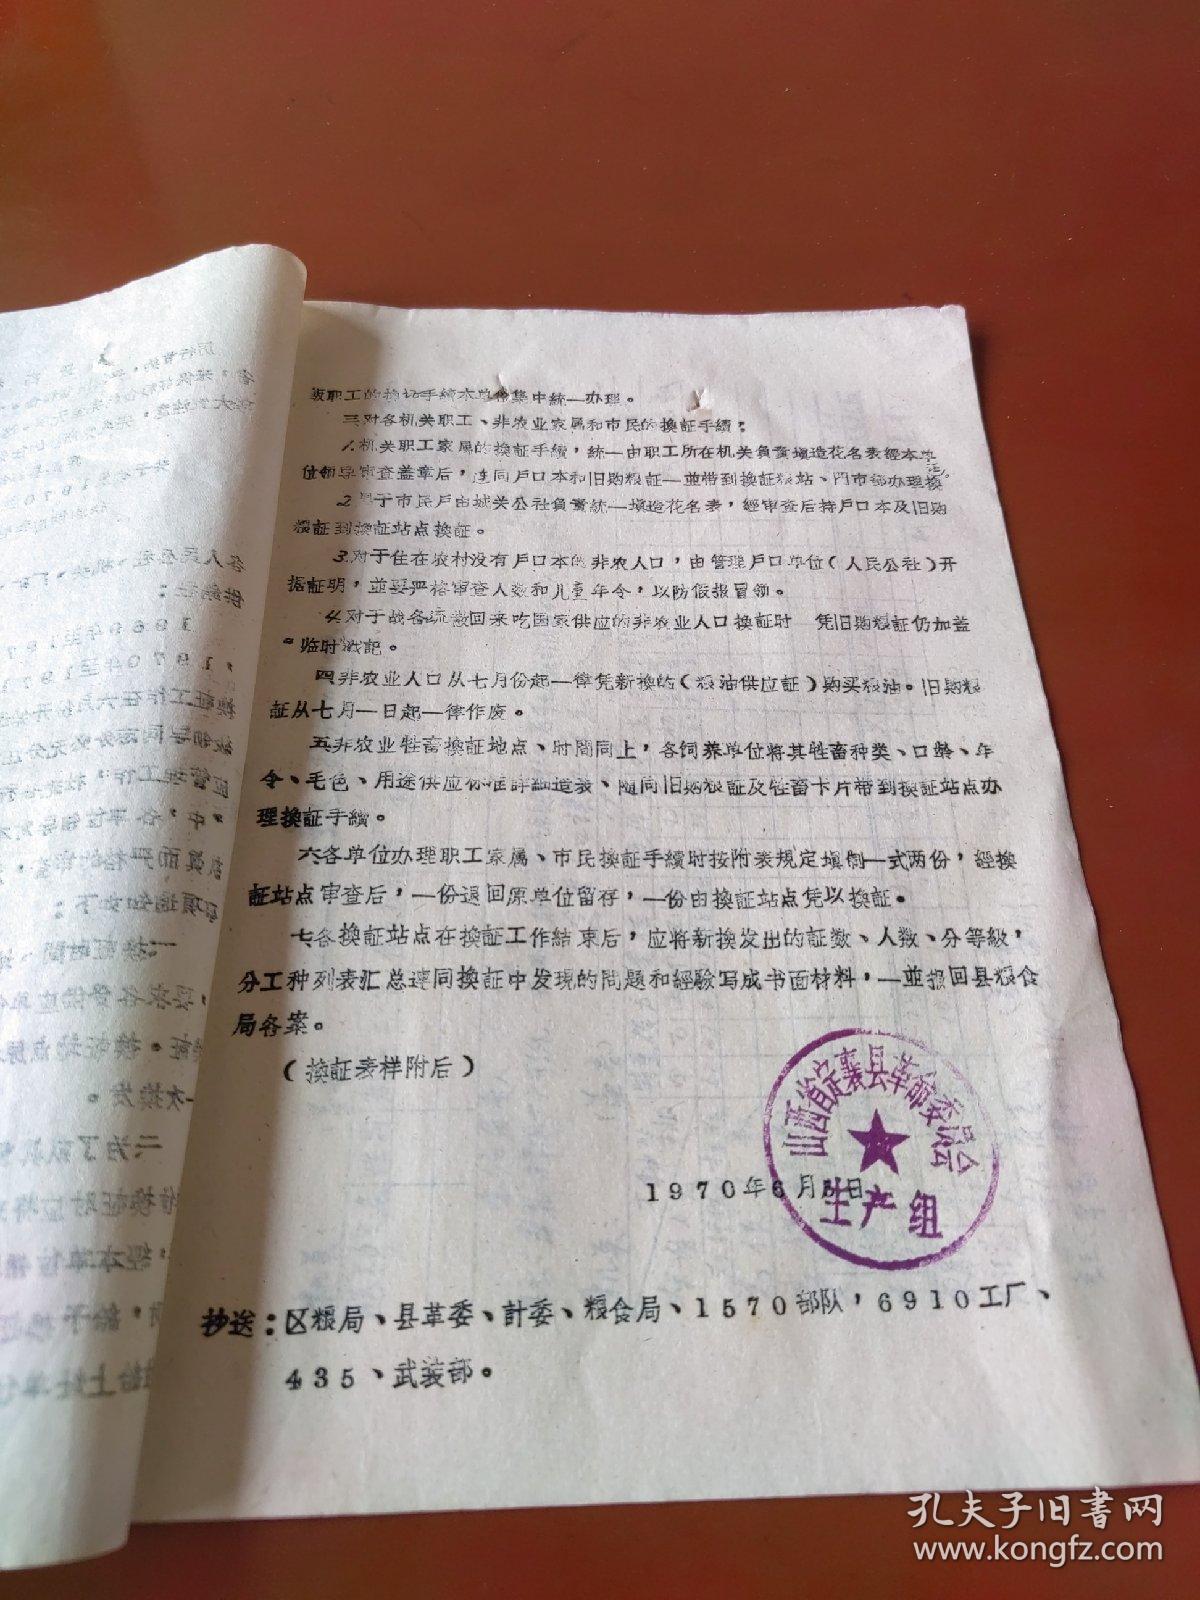 职工的换证手續本单位集中統一办理。
三对各机关职工、非农业家属和市民的換証手續：
1.机关职工家属的換証手續，統一由职工所在机关負責填造花名表經本单
位领导审查盖章后，連同戶口本和旧购粮証一並带到換証粮站、門市部办理換
証。
2.属于市民戶由城关公社負責統一填造花名表，經审查后持戶口本及旧购
粮証到換証站点換証。
3.对于住在农村没有戶口本的非农人口，由管理戶口单位(人民公社)开
据証明，並要严格审查人数和儿童年令，以防假报冒領。
4.对于战备疏散回来吃国家供应的非农业人口換証时 凭旧购粮証仍加盖
"临时战記。
四非农业人口从七月份起一律凭新換的(粮油供应証)购买粮油。旧购粮
証从七月一日起一律作废。
五非农业牲畜換証地点、时間同上，各饲养单位将其牲畜种类、口齡、年
令、毛色、用途供应标准詳細造表、随同旧购粮証及牲畜卡片带到換証站点办
理換証手續。
六各单位办理职工家属、市民換証手續时按附表规定填制一式两份，經換
証站点审查后，一份退回原单位留存，一份由換証站点凭以換証。
七各換証站点在換証工作結束后，应将新換发出的証数、人数、分等級，
分工种列表汇总連同換証中发現的問題和經驗写成书面材料，一並报回县粮食
局备案。
(換証表样附后)
山西省定襄县革命委员会
生产组
1970年6月 日
抄送：区粮局、县革委、計委、粮食局、1570部队，6910工厂、
435、武装部。
孔夫子旧书网
www.kongfz.com